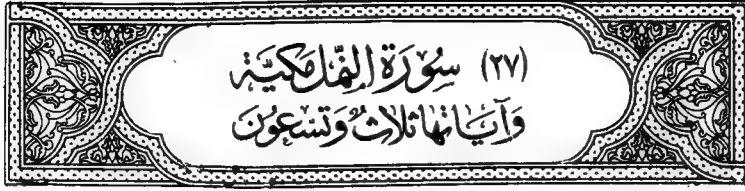 (٢٧) سُورَة النَّمل مَكيَّة
وَآيَاتهَا ثَلَاثٌ وَتِسْعُونَ